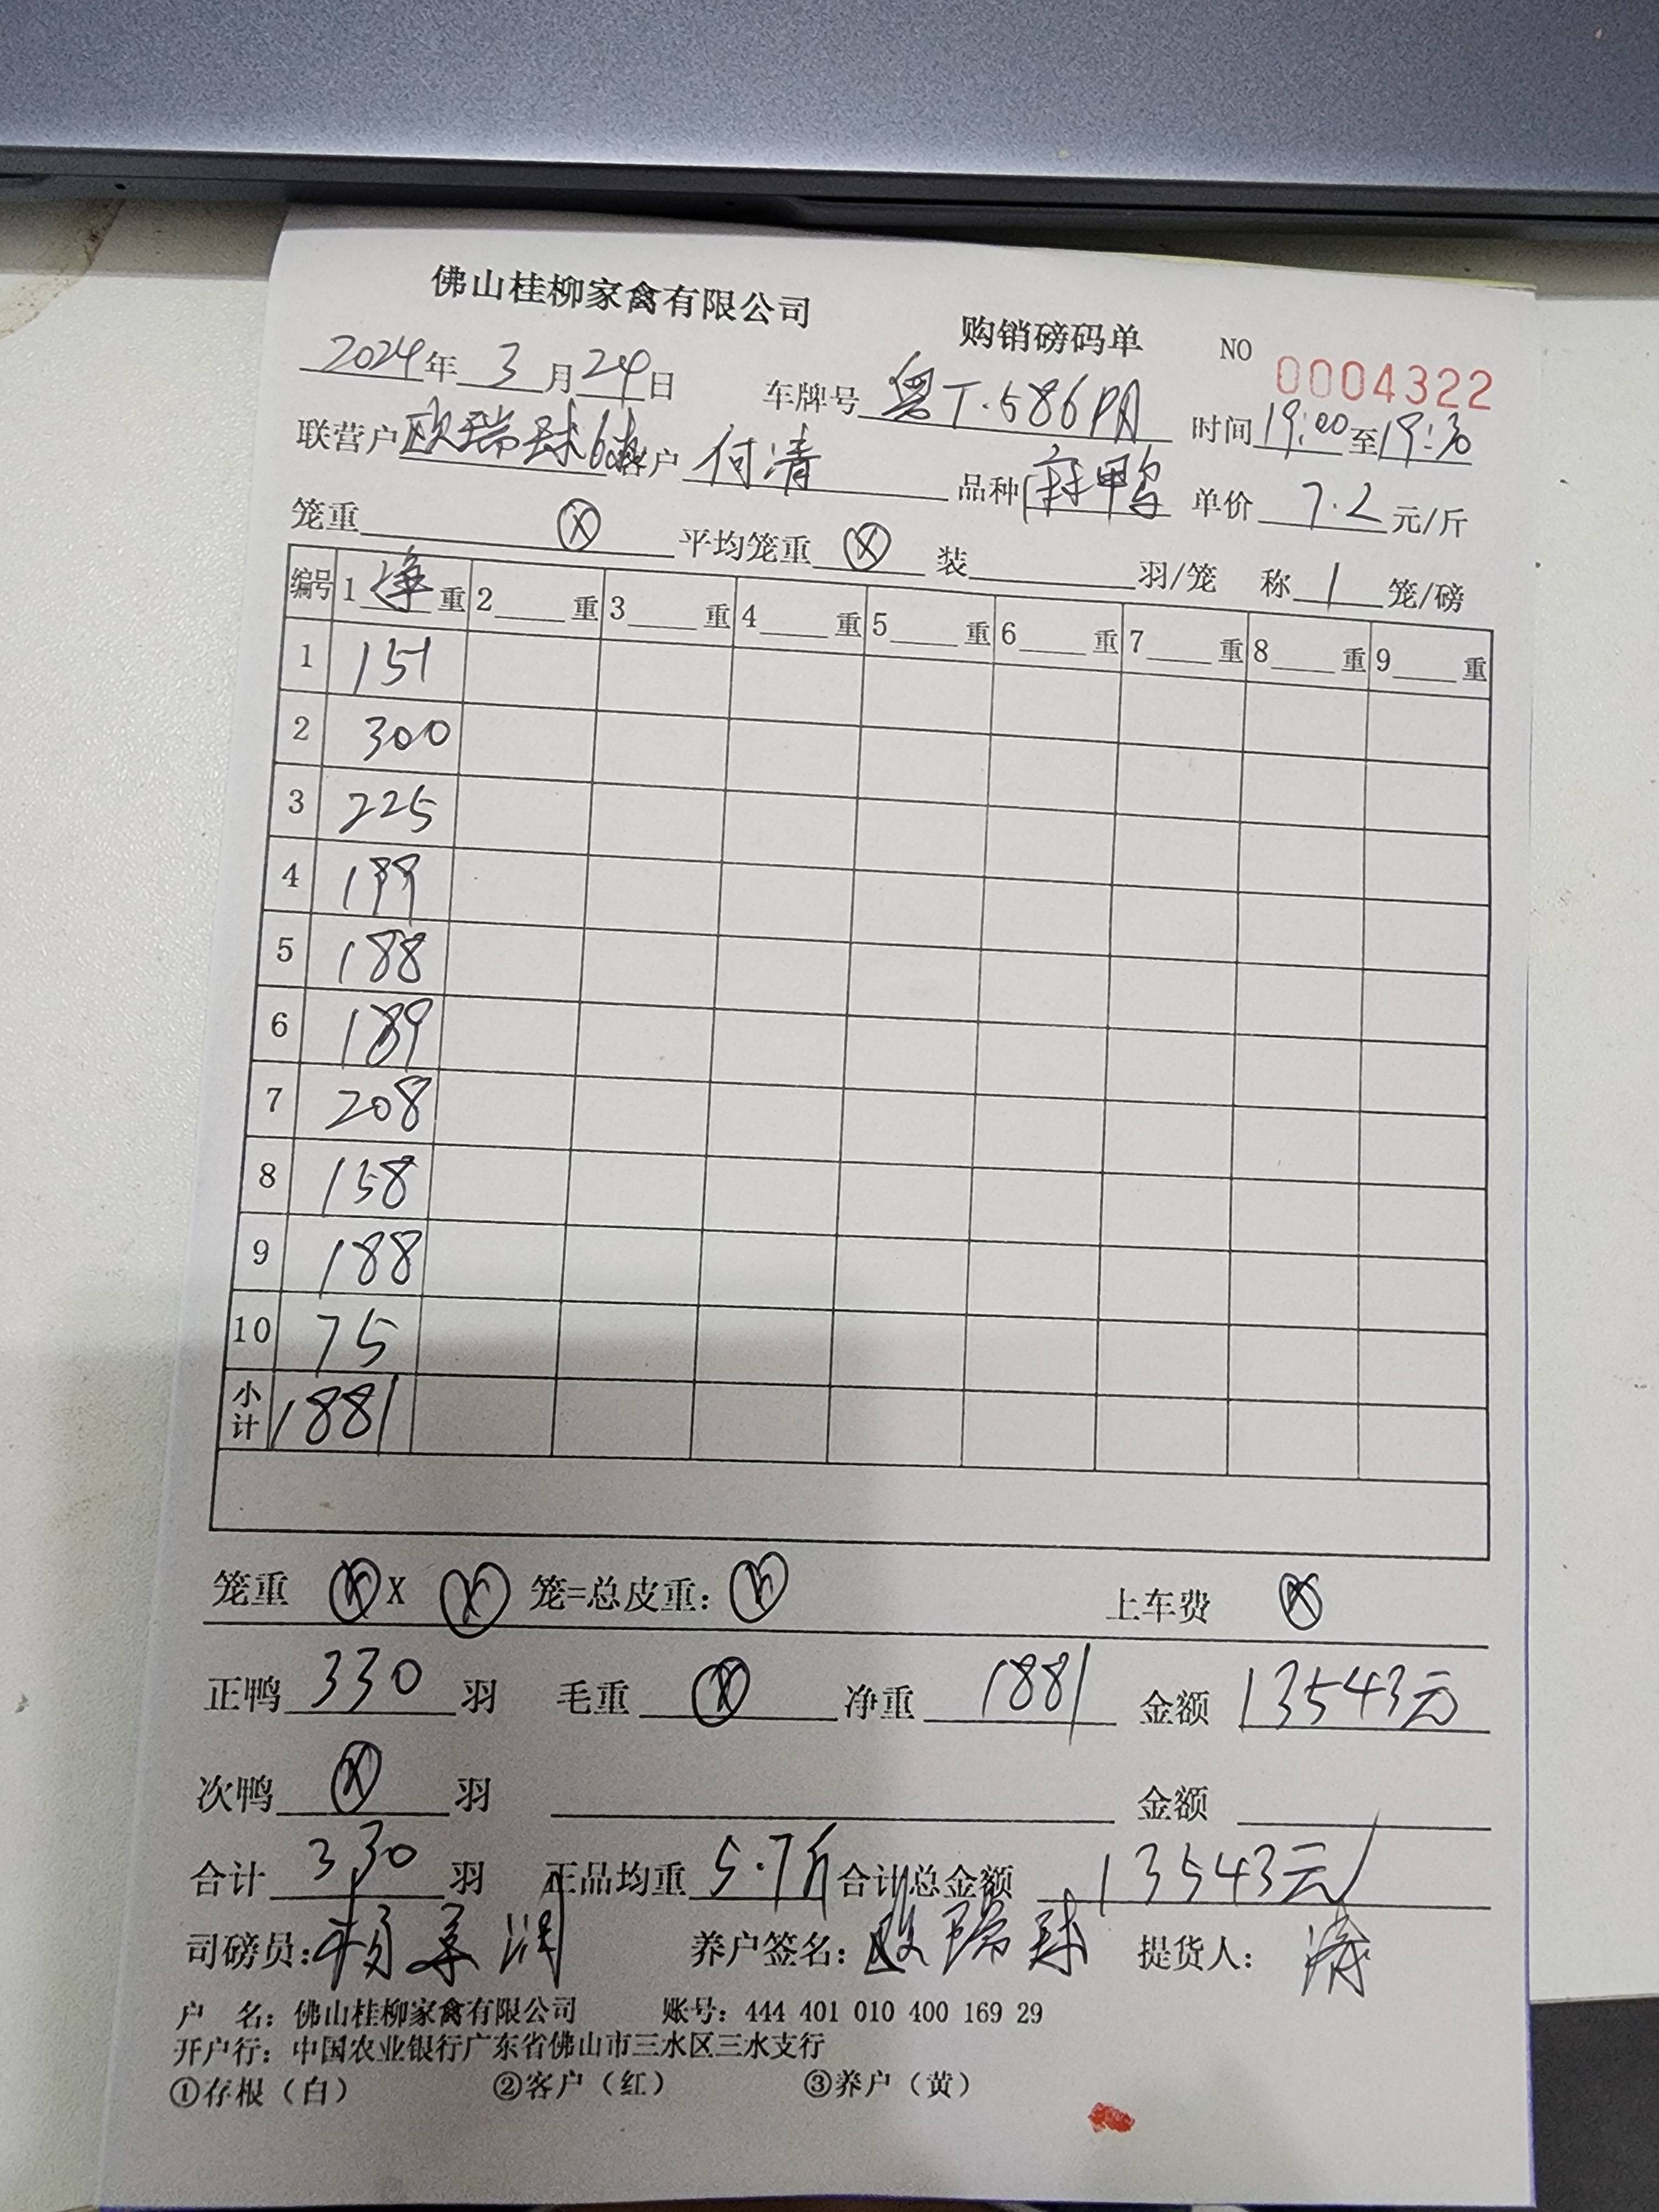 佛山桂柳家禽有限公司 购销磅码单 NO 0004322
2024年3月24日 车牌号 粤T·586PA 时间19:00至19:30
联营户 欧瑞球 客户 何清 品种 麻鸭 单价 7.2 元/斤
笼重 ⓧ 平均笼重 ⓧ 装 羽/笼 称 1 笼/磅
编号 1 净 重 2 重 3 重 4 重 5 重 6 重 7 重 8 重 9 重
1 151
2 300
3 225
4 199
5 188
6 189
7 208
8 158
9 188
10 75
小计 1881
笼重 ⓧ X ⓧ 笼=总皮重: ⓧ 上车费 ⓧ
正鸭 330 羽 毛重 ⓧ 净重 1881 金额 13543元
次鸭 ⓧ 羽 金额
合计 330 羽 正品均重 5.7斤 合计总金额 13543元
司磅员: 养户签名: 欧瑞球 提货人:
户 名: 佛山桂柳家禽有限公司 账号: 444 401 010 400 169 29
开户行: 中国农业银行广东省佛山市三水区三水支行
①存根（白） ②客户（红） ③养户（黄）